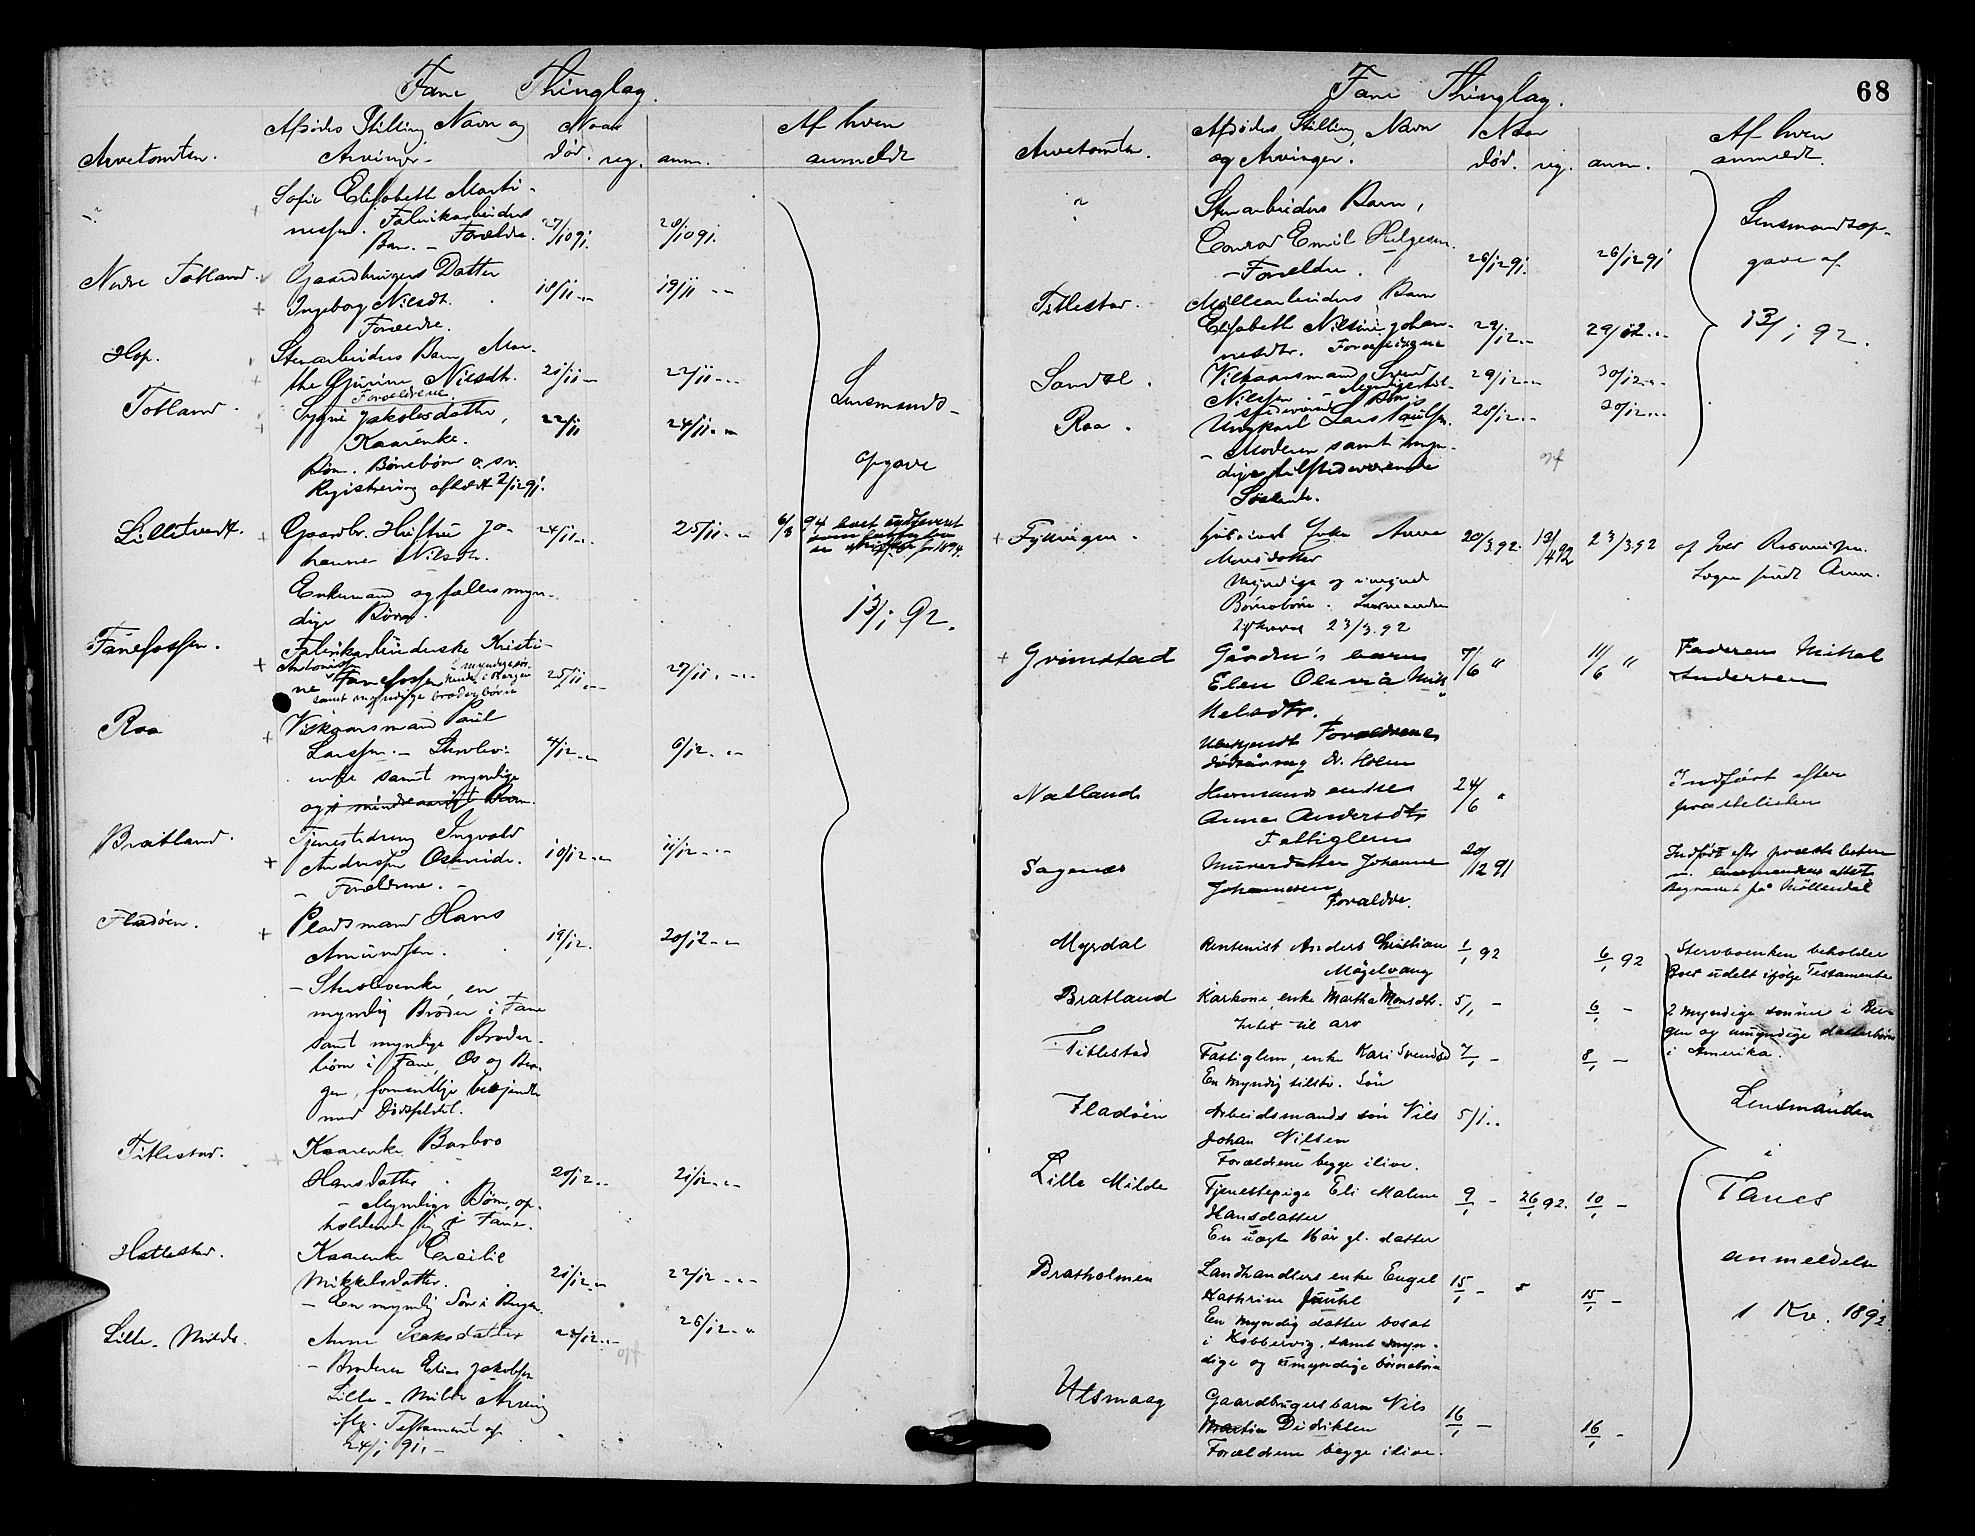 Fane Thinglag.
Arvetomten.
Afdødes Stilling, Navn og
Arvinger.
Naar
død. reg. anm.
Af hvem
anmeldt
Sofie Elisabeth Marti-
nessen. Fabrikarbeiders
Barn. – Forældre.
27/10 91. 28/10 91.
Nedre Totland. Gaardbrugers Datter
Ingeborg Nilsdt.
Forældre.
18/11 – 19/11 –
Hop. Stenarbeiders Barn, Mar-
the Gurine Nilsdtr.
Forældrene
21/11 – 22/11 –
Totland. Sygni Jakobsdatter,
Kaarenke.
Børn. Børnebørn o. sv.
Registrering afholdt 2/12 91.
22/11 24/11 –
Lensmands-
opgave
13/1 92.
Lilletvedt. Gaardbr. Hustru Jo-
hanne Nilsdtr.
Enkemand og fælles myn-
dige Børn.
24/11 – 25/11 –
6/3 94 boet udleveret
Fanefossen. Fabrikarbeiderske Kristi-
ne Antonisd. Fanefossen
samt myndige broderbørn
25/11 – 27/11 –
Raa Vilkaarsmand Paul
Larssen. – Stervbo-
enke samt myndige
og mindreaarige Børn.
4/12 – 6/12 –
Bratland. Tjenestedreng Ingvald
Anderssen
– Forældrene. –
10/12 – 11/12 –
Fladøen. Pladsmand Hans
Amundsen.
– Stervboenke, en
myndig Broder i Fane
samt myndige Broder-
børn i Fane, Os og Ber-
gen, formentlig bekjendte
med Dødsfaldet.
19/12. 20/12 –
Titlestad. Kaarenke Barbro
Hansdatter
– Myndige Børn, op-
holdende sig i Fane.
20/12 – 21/12 –
Hatlestad. Kaarenke Cecilie
Mikkelsdatter.
– En myndig Søn i Bergen.
21/12 – 22/12 –
Lille-Milde. Anne Isaksdatter
– Broderen Elias Jakobsen
Lille-Milde Arving
iflg. Testament af
24/1 91. –
23/12 – 26/12 –
68
Fane Thinglag.
Arvetomten.
Afdødes Stilling, Navn
og Arvinger.
Naar
død. reg. anm.
Af hvem
anmeldt.
Stenarbeiders Barn,
Conrad Emil Helgesen.
– Forældre.
26/12 91. 26/12 91
Lensmandsop-
gave af
13/1 92.
Titlestad. Møllearbeiders Barn
Elisabeth Nilsine Johan-
nesdtr. Forældrene
29/12 – 29/12 –
Sandal. Vilkaarsmand Svend
Nilssen. – Myndige til-
stedeværende Børn
29/12 – 30/12 –
Raa. Ungkarl Lars Paulsen.
– Moderen samt myn-
dige tilstedeværende
Søskende.
28/12 – 30/12 –
Fyllingen. Enke Anne
Monsdatter
Myndige og umynd.
Børnebørn. Lensmanden
23/3.92
20/3.92. 13/4 92 23/3.92 af Iver Rasmussen.
Grimstad Gårdbr's barn
Elen Olivia Mik-
kelsdtr.
Forældrene
7/6 " 11/6 " Faderen Mikal
Andersen
Natland Husmands enke
Anna Andersdtr
Fattiglem
24/6 " Indført efter
præstelisten
Sagenæs Murerdatter Johanne
Johannesen
Forældre.
20/12 91 Indført eftr præstelisten
m. lensmandens attest
Begravet på Møllendal
Myrdal Rentenist Anders Christian
Mågelvang
1/1 92 6/1 92 Stervboenken beholder
Boet udelt ifølge Testamente
Bratland Karkone, enke Martha Monsdtr.
Intet til arv
5/1 – 6/1 – 2 myndige sønner i Ber-
gen og umyndige datterbørn
i Amerika.
Titlestad Fattiglem, enke Kari Svendsd
En myndig tilstr. Søn
7/1 – 8/1 –
Fladøen Arbeidsmands søn Nils
Johan Nilsen
Forældrene begge ilive.
5/1 –
Lensmanden
i
Fanes
anmeldelse
1 Kv. 1892.
Lille Milde Tjenestepige Eli Malene
Hansdatter
En uægte 16 år gl. datter
9/1 – 26/1 92. 10/1 –
Bratholmen Landhandlers enke Engel
Kathrine Juuhl
En myndig datter bosat
i Kobbervig, samt myn-
dige og umyndige børnebørn
15/1 – 15/1 –
Ulsmaag Gaardbrugers barn Nils
Martin Didriksen
Forældrene begge ilive.
16/1 – 16/1 –